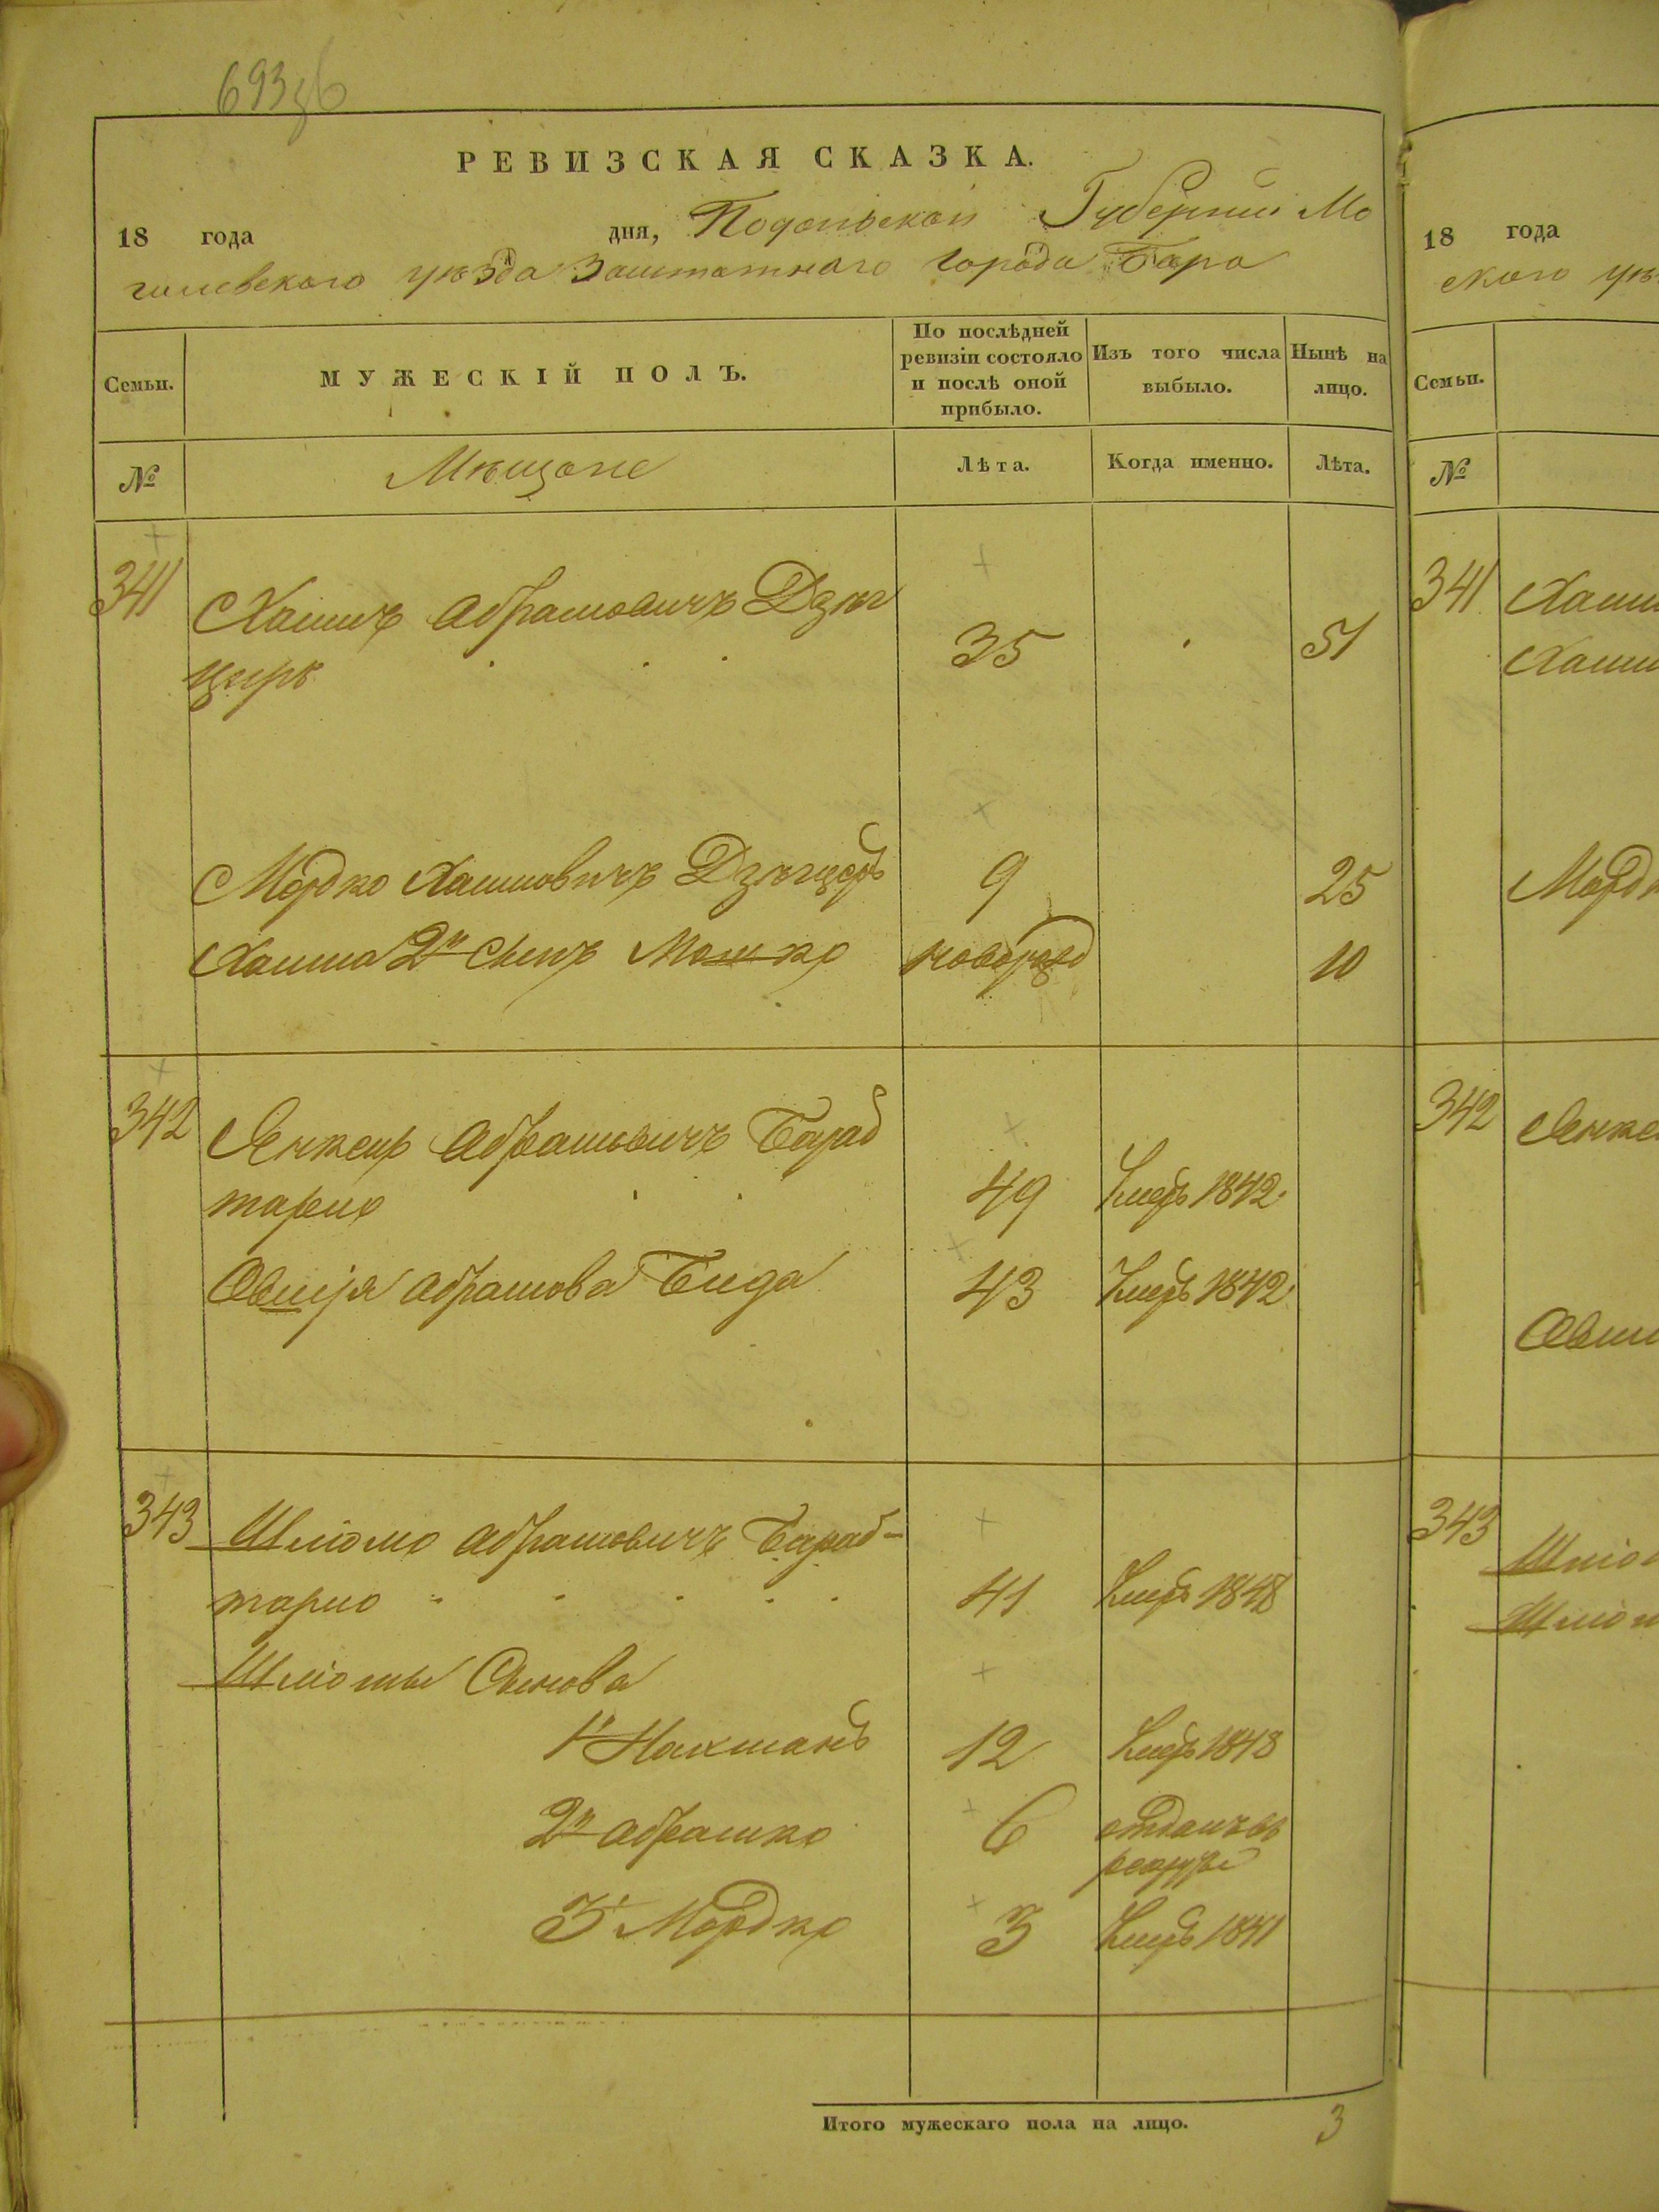 693 зб
РЕВИЗСКАЯ СКАЗКА.
18 года дня, Подольской Губернии Мо
гилевскаго уѣзда Заштатнаго города Бара
Семьи.
МУЖЕСКІЙ ПОЛЪ.
По послѣдней ревизіи состояло и послѣ оной прибыло.
Изъ того числа выбыло.
Ныне на лицо.
№
Мѣщане
Лѣта.
Когда именно.
Лѣта.
341 Хаимъ Абрамовичъ Дзиг
церъ 35 51
Мордко Хаимовичъ Дзигцеръ 9 25
Хаима 2й Сынъ Мошко новорожд 10
342 Янкель Абрамовичъ Бараб
тарио 49 Умеръ 1842
Абрамова 43 Умеръ 1842
343 Шліомо Абрамовичъ Бараб-
тарио 41 Умеръ 1848
Шліомы Сынова
1й Нахманъ 12 Умеръ 1848
2й Абрамко 6 отданъ въ
рекруты
3й Мордко 3 Умеръ 1841
Итого мужескаго пола на лицо. 3
18 года
скаго уѣ
Семьи.
№
341 Хаим
Хаим
Мордк
342 Янке
343 Шліо
Шліом